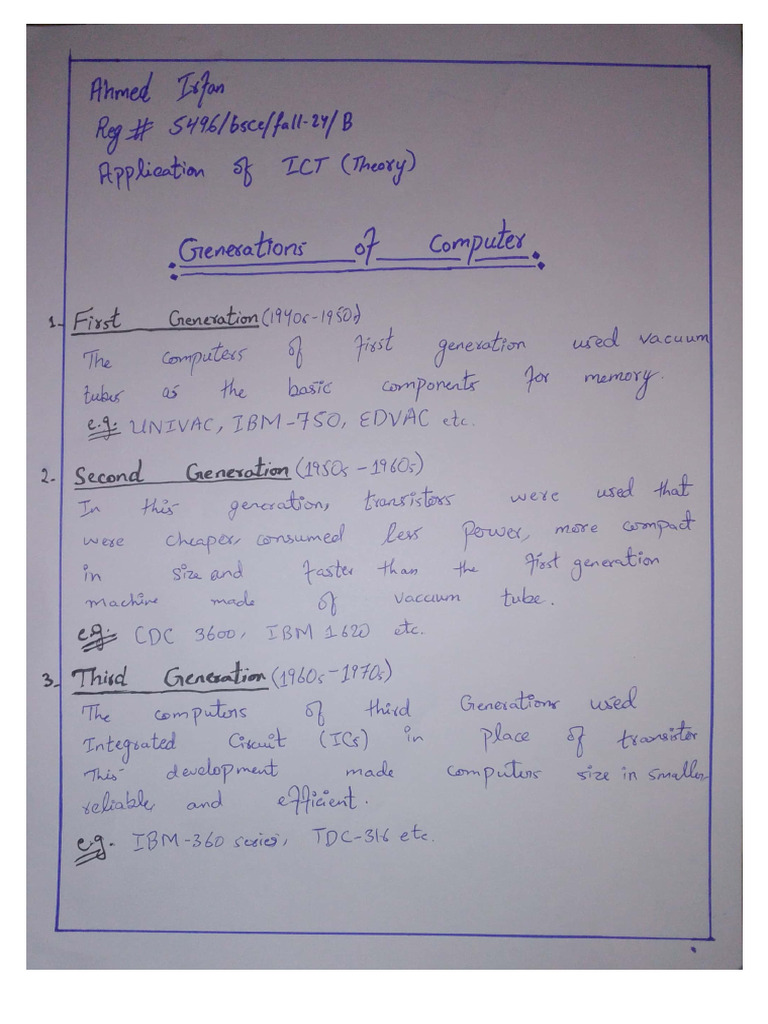 Ahmed Irfan
Reg # 5496/bsce/fall-24/B
Application of ICT (Theory)
Generations of Computer
1- First Generation (1940s-1950s)
The computers of first generation used vacuum
tubes as the basic components for memory.
e.g. UNIVAC, IBM-750, EDVAC etc.
2- Second Generation (1950s-1960s)
In this generation, transistors were used that
were cheaper, consumed less power, more compact
in size and faster than the first generation
machine made of vacuum tube.
e.g. CDC 3600, IBM 1620 etc.
3- Third Generation (1960s-1970s)
The computers of third Generations used
Integrated Circuit (ICs) in place of transister
This development made computers size in smaller
reliable and efficient.
e.g. IBM-360 series, TDC-316 etc.